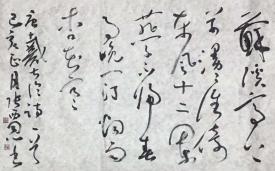 蘇溪亭上
草漫漫誰倚
東風十二闌
燕子不歸春
事晚一汀烟雨
杏花寒
唐戴叔倫詩一首
己亥正月